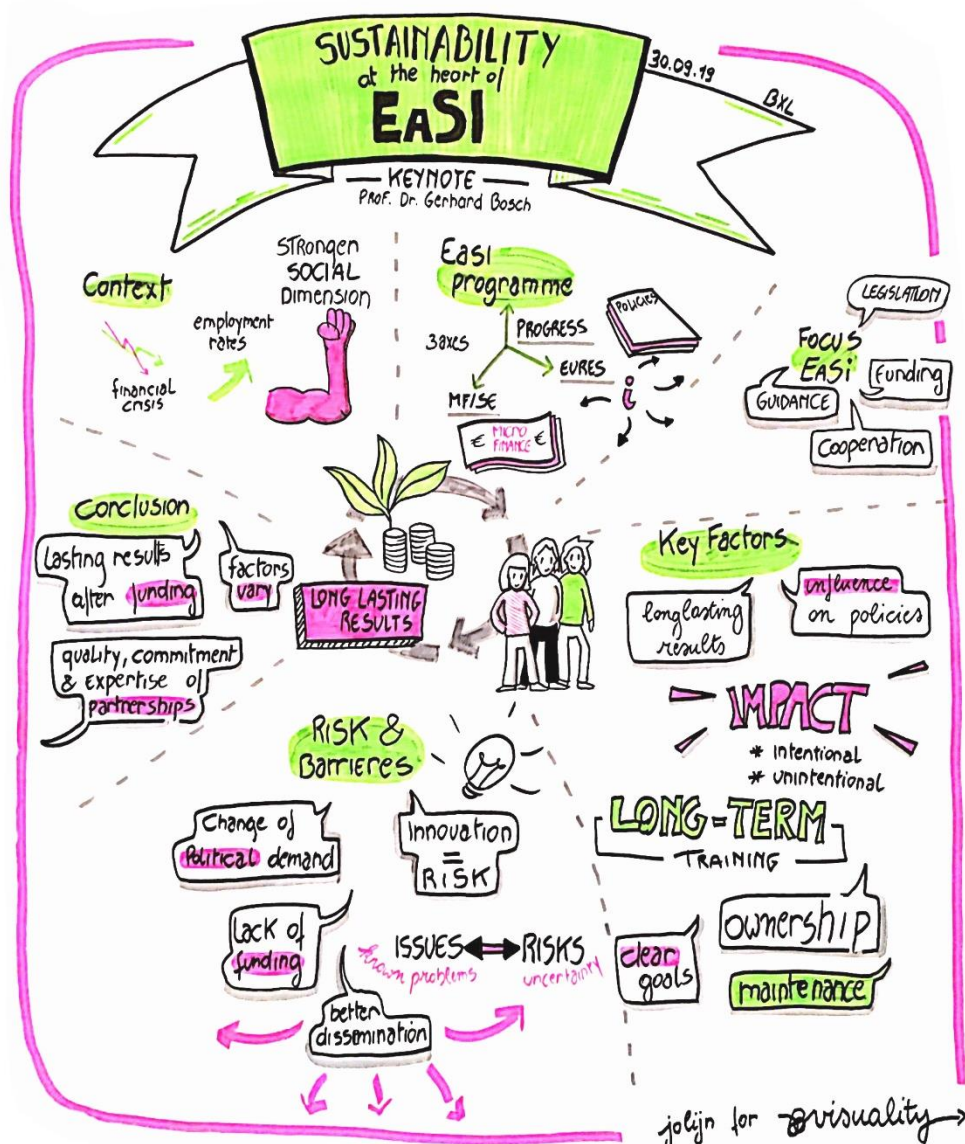 SUSTAINABILITY
at the heart of
EaSI
30.09.19
BXL
KEYNOTE
PROF. Dr. Gerhard Bosch
Context
financial
crisis
employment
rates
STRONGER
SOCIAL
Dimension
EaSI
programme
3axes
PROGRESS
EURES
MF/SE
€ MICRO €
FINANCE
POLICIES
i
LEGISLATION
FOCUS
EASi
Funding
GUIDANCE
Cooperation
Conclusion
lasting results
after funding
factors
vary
quality, commitment
& expertise of
partnerships
LONG LASTING
RESULTS
Key Factors
longlasting
results
influence
on policies
IMPACT
* intentional
* unintentional
LONG=TERM
TRAINING
ownership
clear
goals
maintenance
RiSK &
Barrieres
Change of
Political demand
Innovation
=
RiSK
Lack of
funding
ISSUES
known problems
RISKS
uncertainty
better
dissemination
jolijn for visuality